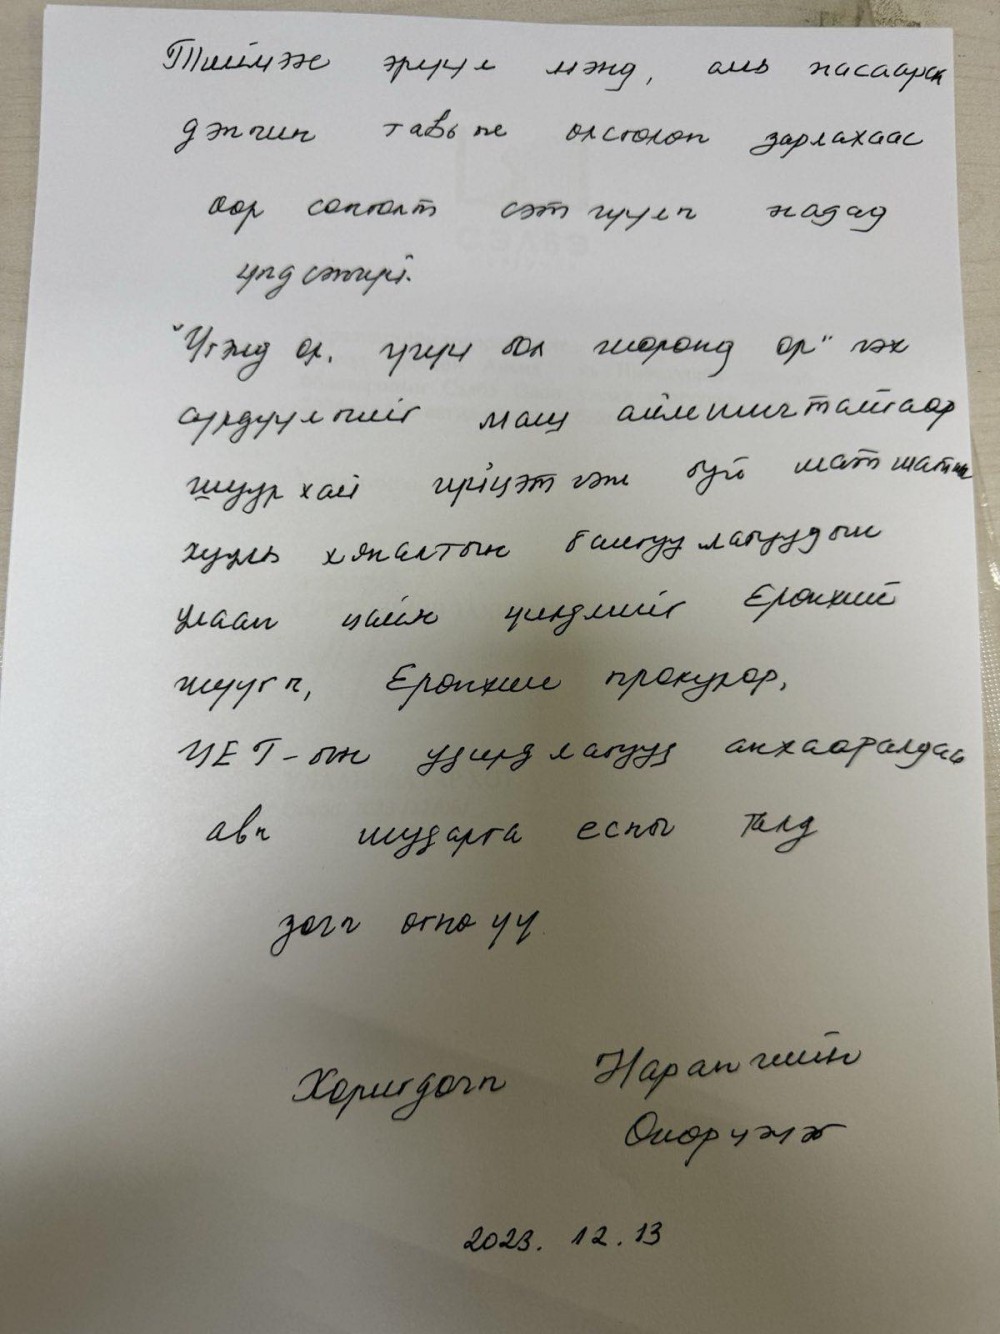 Тиймээс эрүүл мэнд, амь насаараа
дэнчин тавьж өлсгөлөн зарлахаас
өөр сонголт сэтгүүлч надад
үлдсэнгүй.
"Үгэнд ор, үгүй бол шоронд ор" гэх
сүрдүүлгийг маш аймшигтайгаар
шуурхай гүйцэтгэж буй шат шатны
хууль хяналтын байгууллагуудын
улаан цайм үйлдлийг Ерөнхий
шүүгч, Ерөнхий прокурор,
ЦЕГ-ын удирдлагууд анхааралдаа
авч шударга ёсны талд
зогсч өгнө үү.
Хоригдогч Нарангийн
Өнөрцэцэг
2023. 12. 13